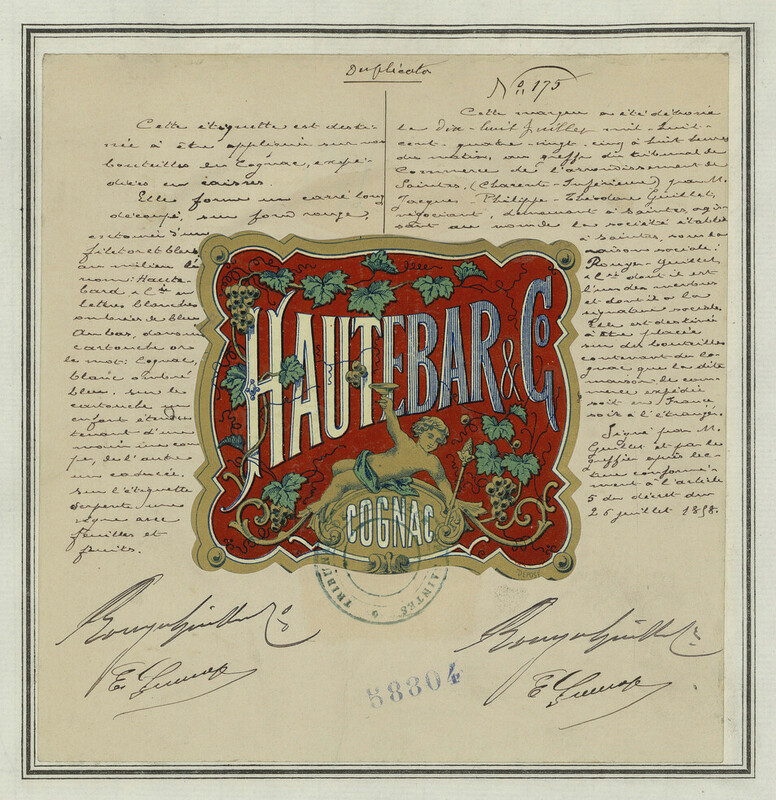 Duplicata
No 175
Cette étiquette est desti-
née à être appliquée sur nos
bouteilles de Cognac, expé-
diées en caisses.
Elle forme un carré long
découpé, sur fond rouge,
entouré d'un
filet or et bleu
au milieu le
nom: Haute-
bard & Cie
lettres blanches
ombrées de bleu
Au bas, dans un
cartouche or
le mot: Cognac,
blanc ombré
bleu. sur le
cartouche, un
enfant étendu
tenant d'une
main une cou-
pe, de l'autre
un caducée,
sur l'étiquette
serpente une
vigne avec
feuilles et
fruits.
Cette marque a été déposée
le dix-huit juillet mil-huit-
cent-quatre-vingt-cinq à huit heures
du matin, au greffe du tribunal de
Commerce de l'arrondissement de
Saintes, (Charente-Inférieure) par M.
Jacques-Philippe-Théodore Guillet,
négociant, demeurant à Saintes, agis-
sant au nom de la société établie
à Saintes, sous la
raison sociale:
Rouyer-Guillet
& Cie dont il est
l'un des membres
et dont il a la
signature sociale.
Elle est destinée
à être placée
sur des bouteilles
contenant du co-
gnac que la dite
maison de com-
merce expédie
soit en France
soit à l'étranger.
Signé par M.
Guillet et par le
greffier après lec-
ture conformé-
ment à l'article
5 du décret du
26 juillet 1858.
HAUTEBAR & Co
COGNAC
DÉPOSÉ
TRIBU
SAINTES
Rouyer Guillet & Co
Rouyer Guillet & Co
58304